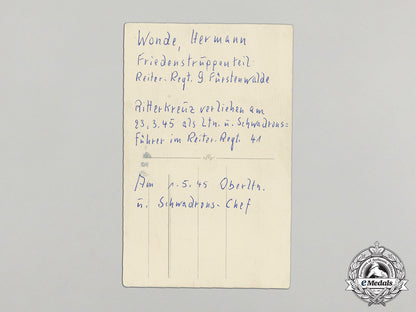 Wonde, Hermann
Friedenstruppenteil:
Reiter-Regt. 9 Fürstenwalde
Ritterkreuz verliehen am
23.3.45 als Ltn. u. Schwadrons=
Führer im Reiter-Regt. 41
Am 1.5.45 Oberltn.
u. Schwadrons-Chef
eMedals